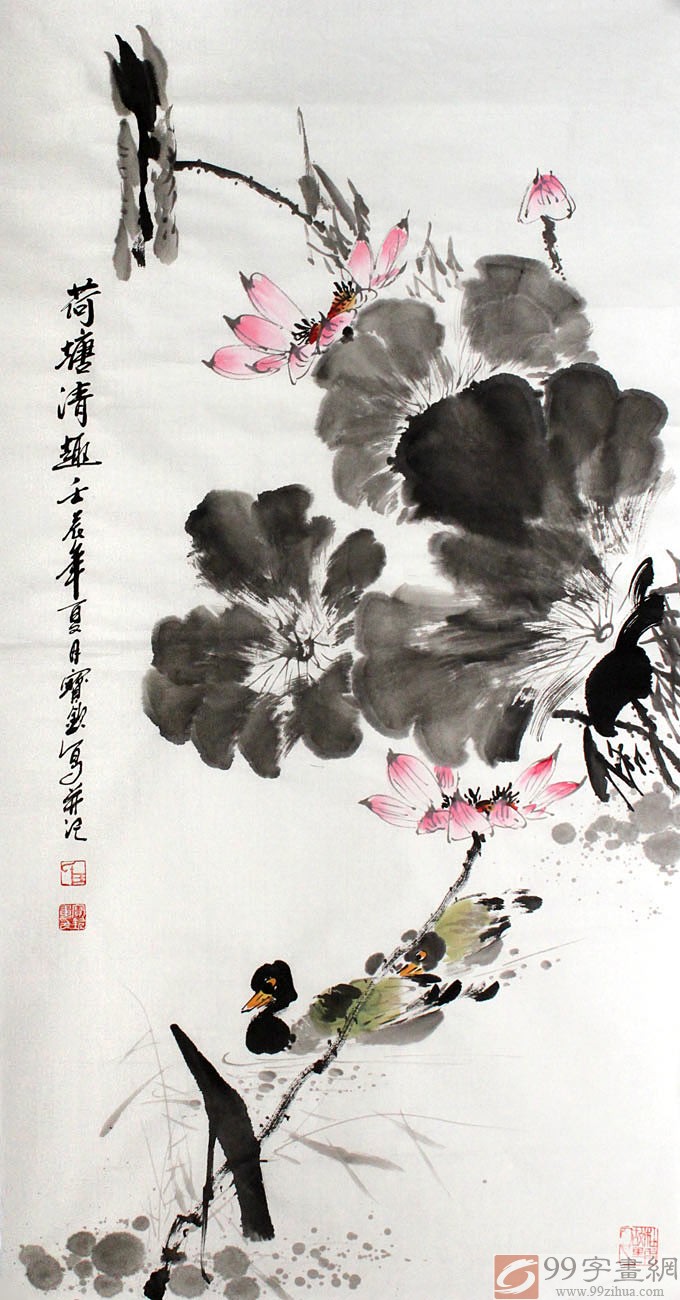 荷塘清趣壬辰年夏日寶欽寫并记
99字畫網
www.99zihua.com